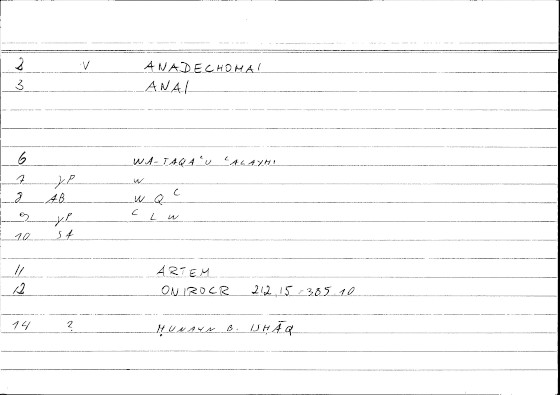 2 V ANADECHOMAI
3 ANAI
6 WA-TAQAʿU ʿALAYHI
7 γP W
8 AB W Q ʿ
9 γP ʿ L W
10 SA
11 ARTEM
12 ONIROCR 212,15 = 385 10
14 ? ḤUNAYN B. ISḤĀQ